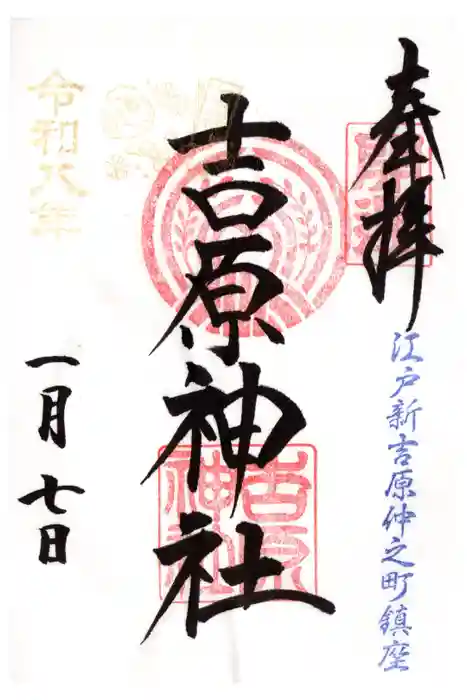 奉拝
江戸新吉原仲之町鎮座
吉原神社
吉原神社
令和八年
一月七日